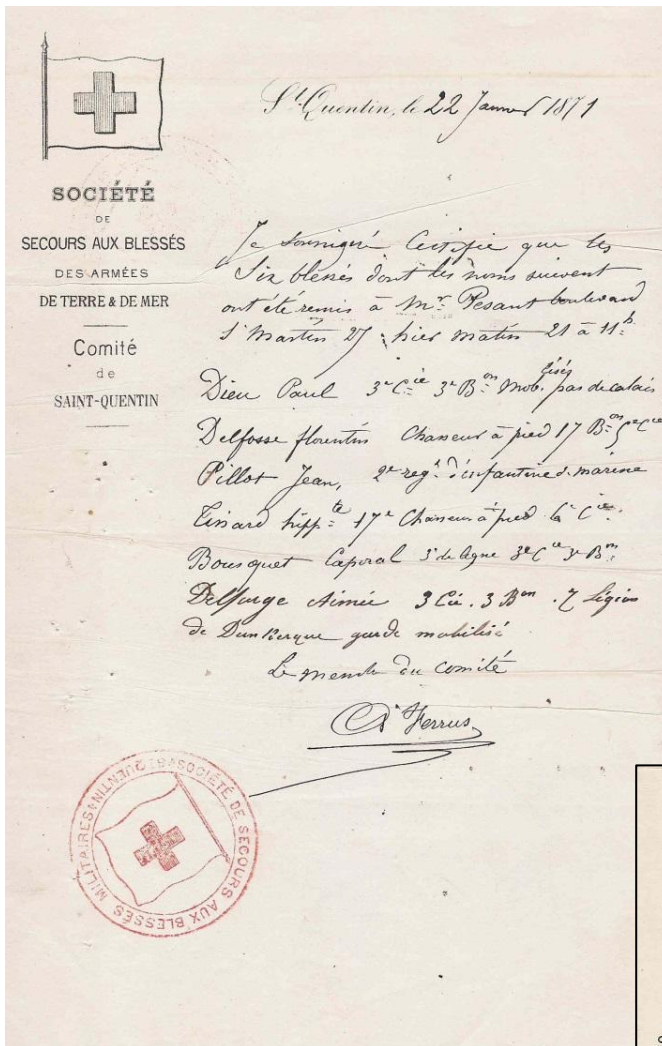 St. Quentin, le 22 Janvier 1871
SOCIÉTÉ
DE
SECOURS AUX BLESSÉS
DES ARMÉES
DE TERRE & DE MER
Comité
de
SAINT-QUENTIN
Je soussigné Certifie que les
Six blessés dont les noms suivent
ont été remis à Mr. Pesant boulevard
St Martin 27. hier matin 21 à 11h
Dieu Paul 3e Cie 3e Bon Mobilisés pas de calais
Delfosse florentin Chasseur à pied 17 Bon 5e Cie
Pillot Jean, 2e regt d'infanterie d. marine
Tinard hippte 17e Chasseur à pied Cie
Bousquet Caporal de ligne 3e Cie 3e Bon
Delforge Aimée 3 Cie. 3 Bon. 7 Légion
de Dunkerque garde mobilisé
Le membre du Comité
Ferrus
SOCIÉTÉ DE SECOURS AUX BLESSÉS MILITAIRES
ST QUENTIN